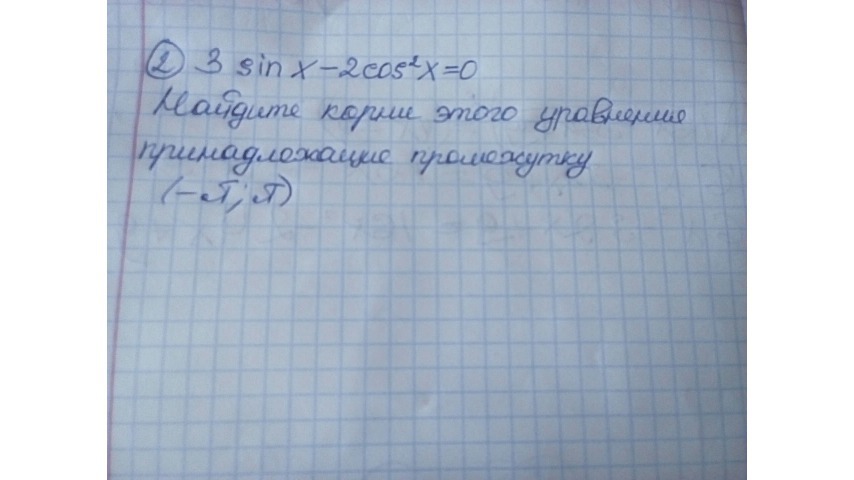 ② 3 sin x - 2cos²x = 0
Найдите корни этого уравнения
принадлежащие промежутку
(-π; π)